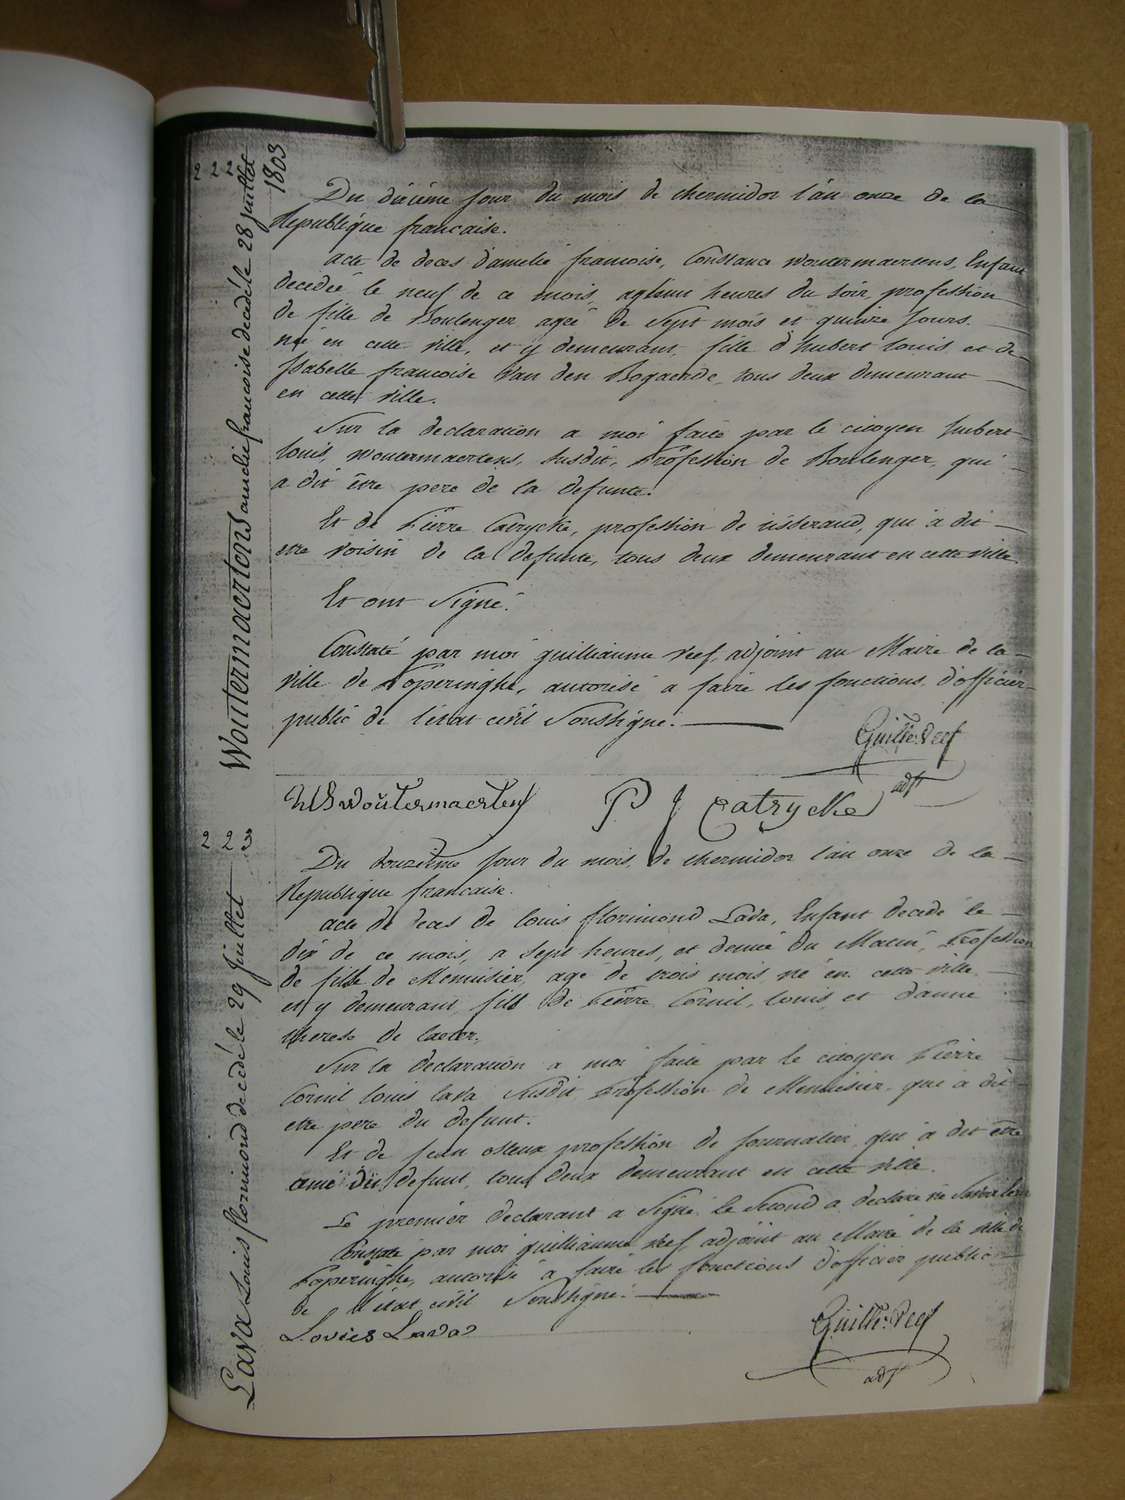 222
Woutermaertens amelie francoise decedé le 28 juillet
1803
Du dixième jour du mois de thermidor l'an onze de la
Republique francaise.
acte de deces d'amelie francoise, Constance Woutermaertens, Enfant
decedeé le neuf de ce mois, heures du soir profession
de fille de Boulenger, agé de Sept mois et quinze jours.
né en cette ville, et y demeurant, fille d'hubert louis et de
Isabelle francoise Van den Bogaerde, tous deux demeurant
en cette ville.
Sur la declaration a moi faite par le citoyen hubert
louis, Woutermaertens, Susdit, Profession de Boulenger, qui
a dit être pere de la defunte.
Et de Pierre Catrycke, profession de tisserand, qui a dit
etre voisin de la defunte, tous deux demeurant en cette ville.
Et ont Signé.
Constaté par moi guilliaume reef, adjoint au Maire de la
ville de Poperinghe, autorisé a faire les fonctions d'officier
public de l'état civil Soussigné.
Guille: Reef
adjt
Woutermaertens P J Catrycke
223
Lava Louis florimond decedé le 29 Juillet
Du douzeime jour du mois de thermidor l'an onze de la
Republique francaise.
acte de deces de louis florimond Lava, Enfant decedé le
dix de ce mois, a sept heures, et demie du Matin, Profession
de fils de Menuisier, agé de trois mois, né en cette ville,
et y demeurant, fils de Pierre Cornil, louis, et d'anne
therese de
Sur la declaration a moi faite par le citoyen Pierre
Cornil louis lava Susdit Profession de Menuisier, qui a dit
etre pere du defunt.
Et de jean profession de journalier, qui a dit etre
ami du defunt, tous deux demeurant en cette ville.
Le premier declarant a Signé, le Second a declaré ne
Constaté par moi guilliaume reef adjoint au Maire de la ville de
Poperinghe, autorisé a faire les fonctions d'officier public
de l'état civil Soussigné.
Lovies Lava
Guille: Reef
adjt